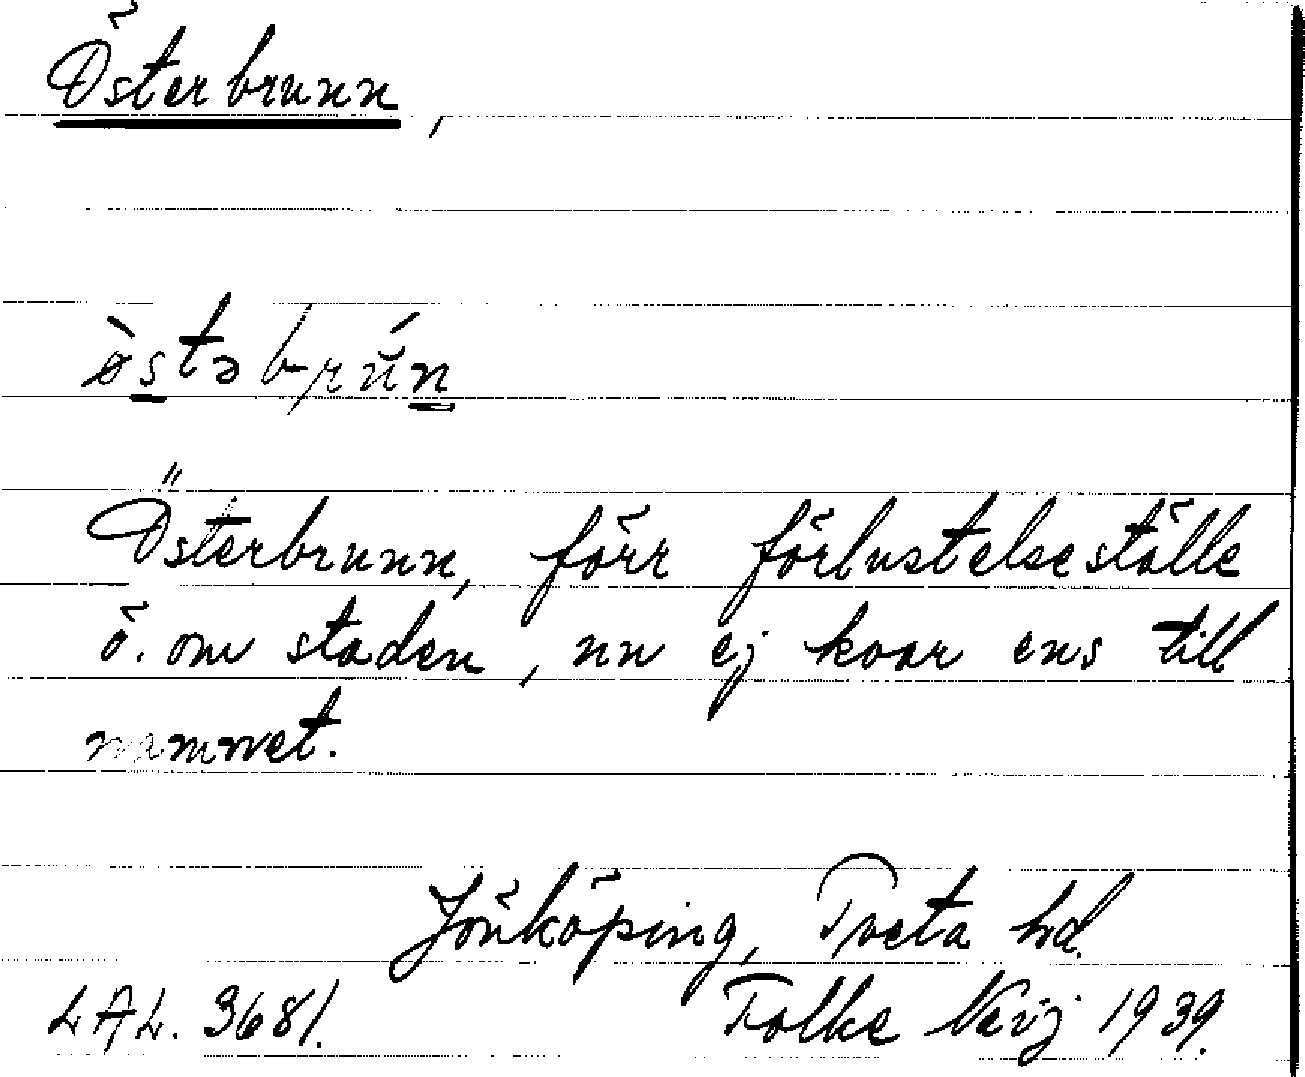 Österbrunn,
östəbrún
Österbrunn, förr förlustelseställe
ö. om staden, nu ej kvar ens till
namnet.
Jönköping, Tveta hd.
LAL. 3681. Folke Neij 1939.